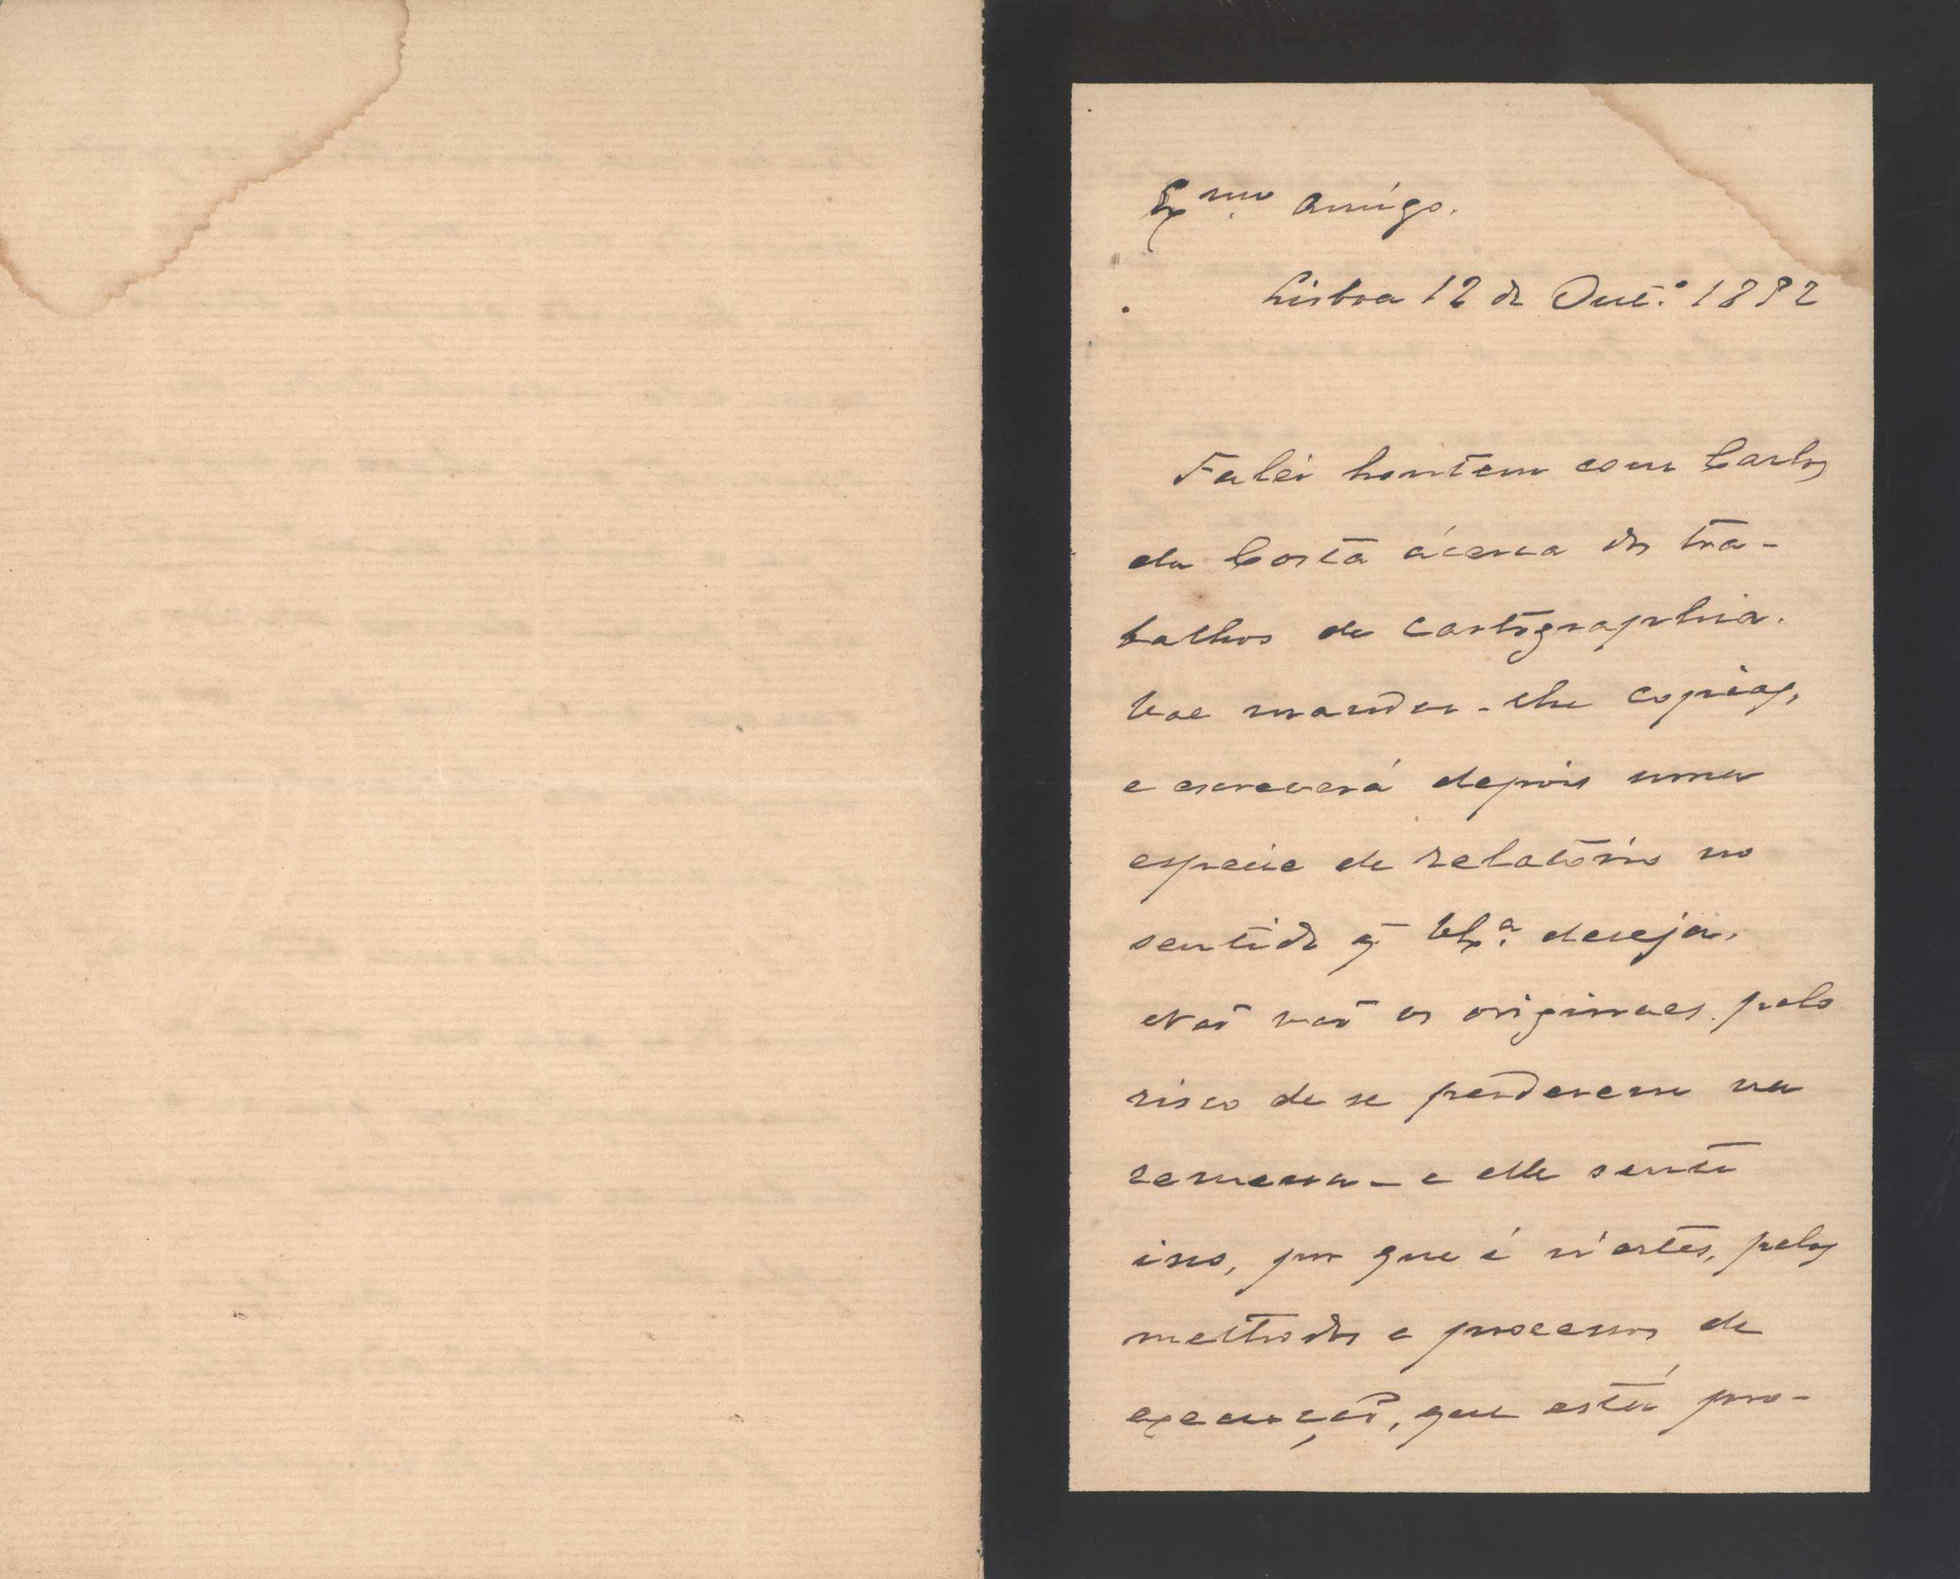 Exmo. Amigo.
Lisboa 12 de Out.º 1892
Falei hontem com Carlos
da Costa ácerca dos tra-
balhos de cartographia.
Vae mandar-lhe copias,
e escreverá depois uma
especie de relatório no
sentido q̃ V.Exª. deseja.
Naõ vaõ os originaes pelo
risco de se perderem na
remessa – e elle sente
isso, por que é n'estes, pelos
methodos e processos de
execuçaõ, que está pro-